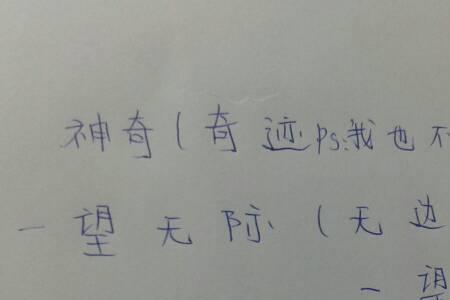 神奇(奇迹ps:我也不
一望无际(无边
一望